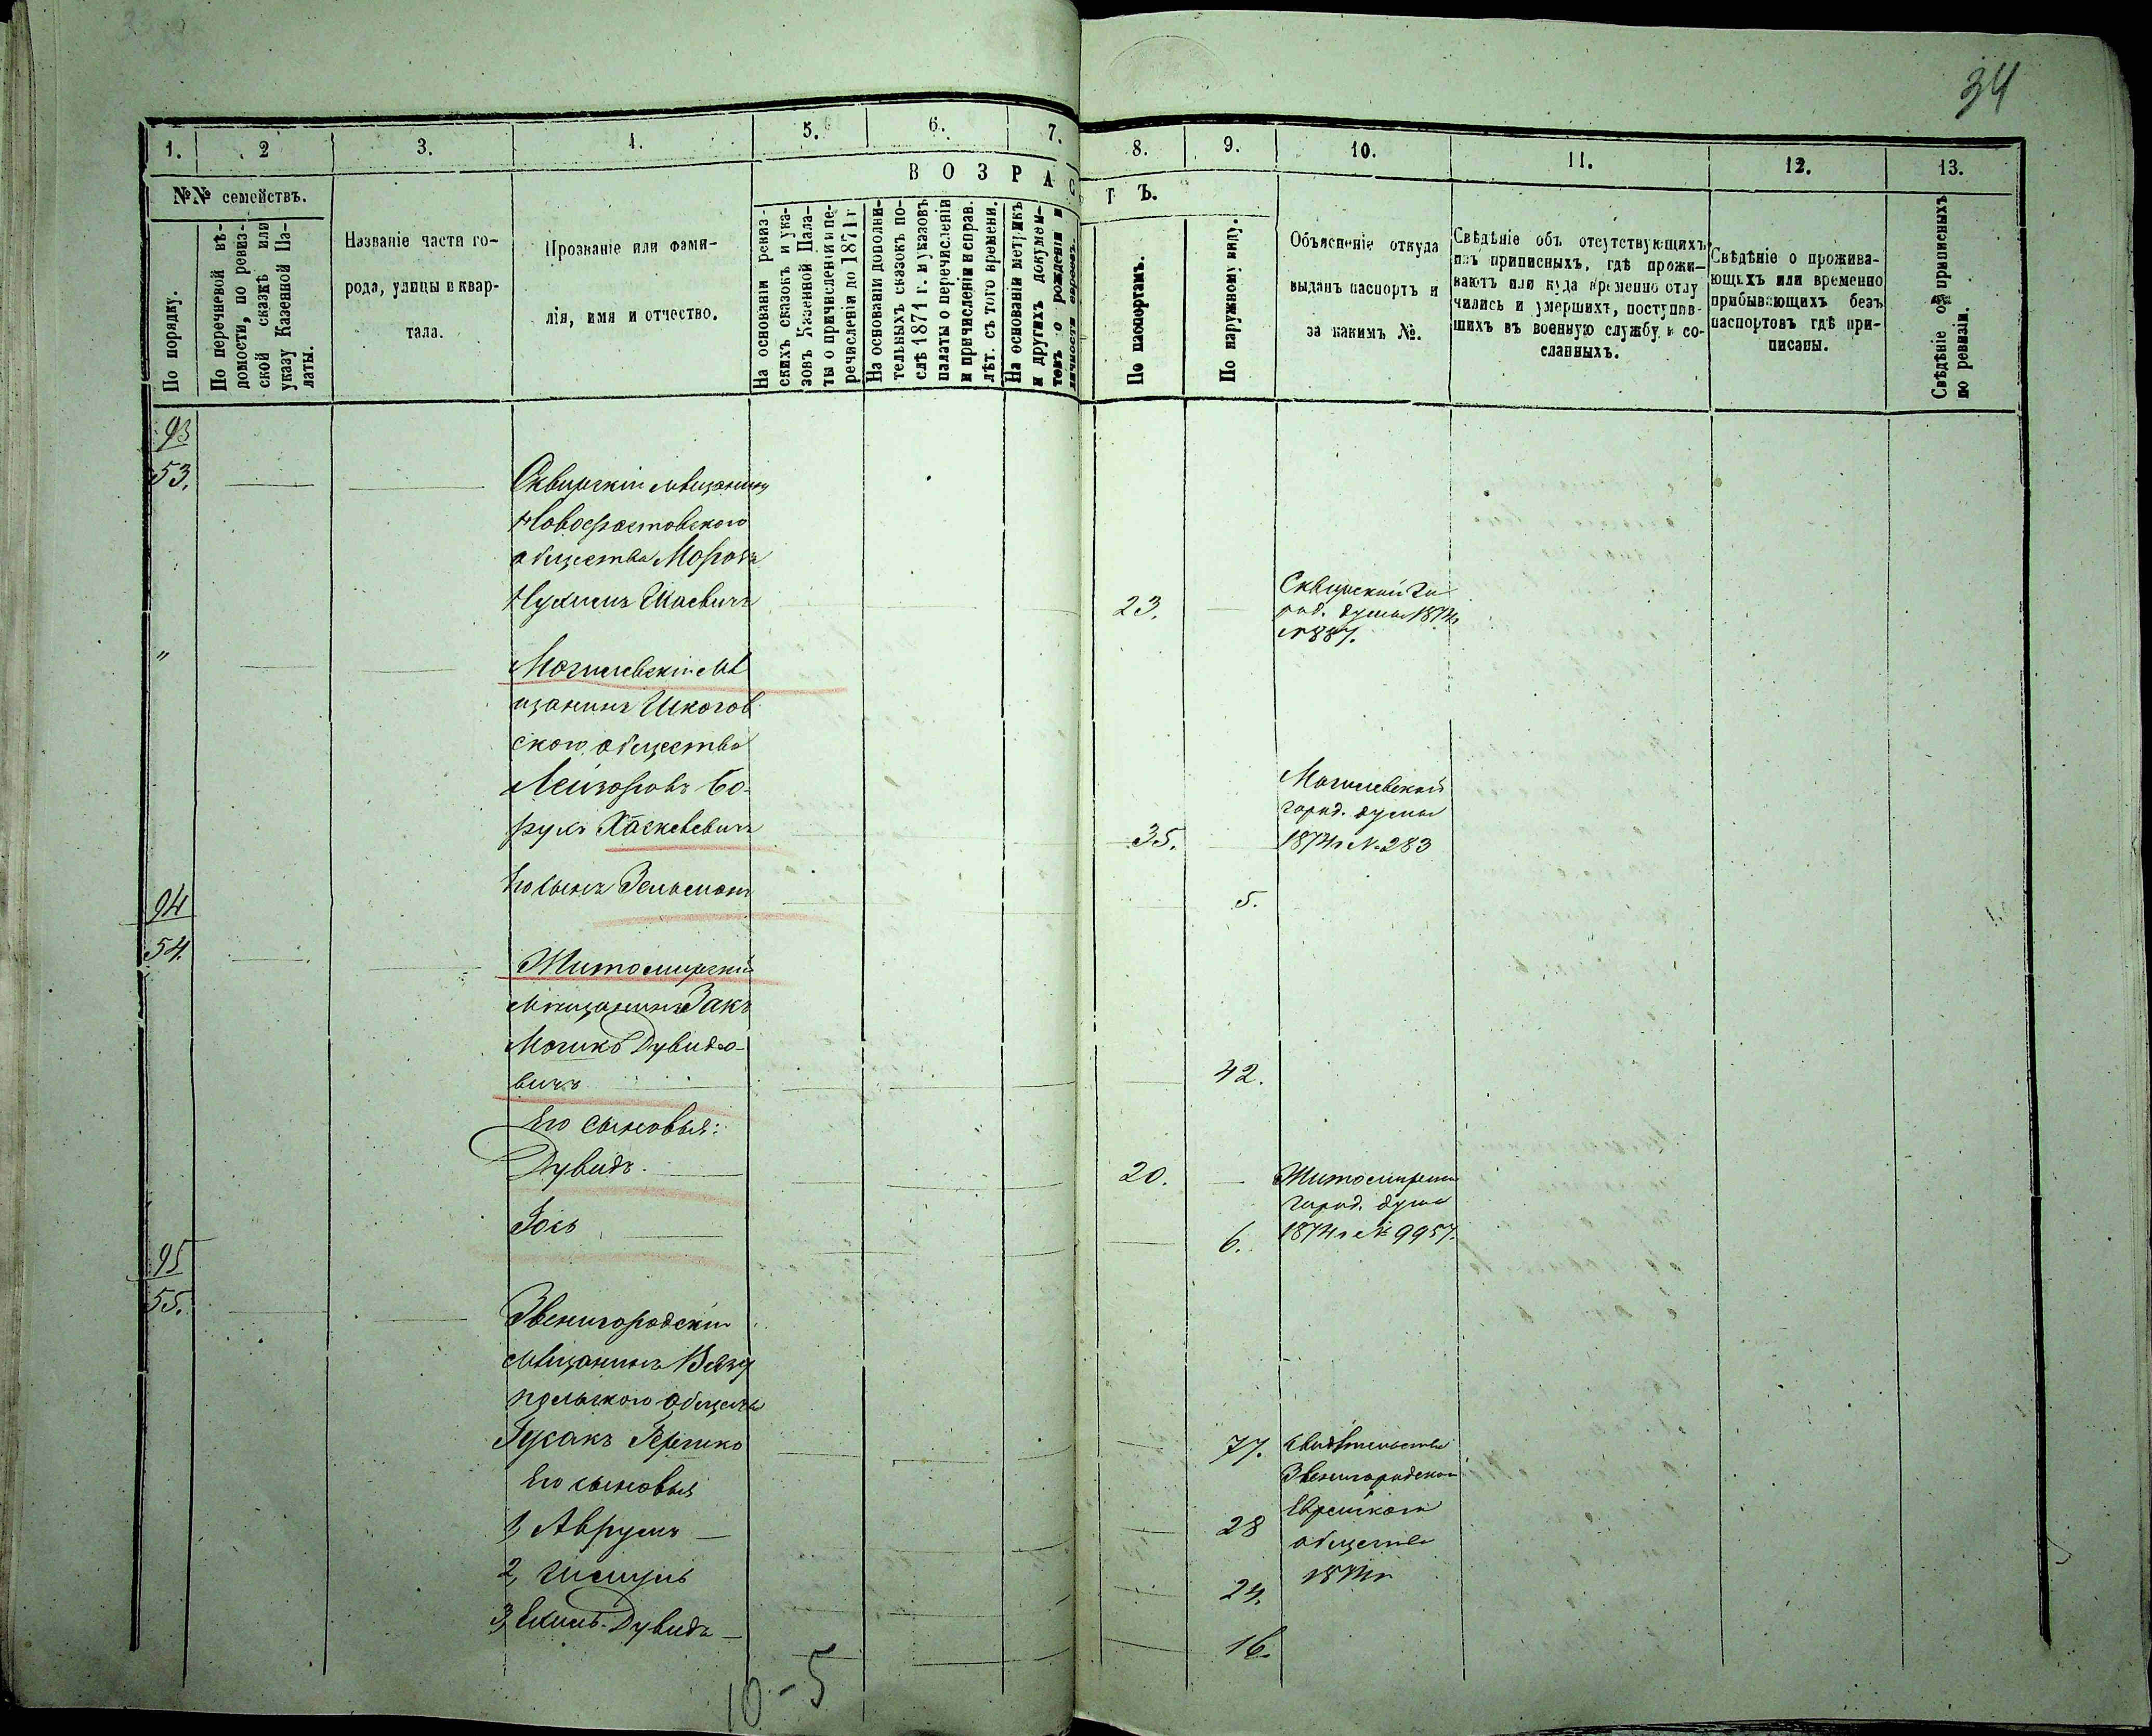 34
1. 2 3. 4. 5. 6. 7. 8. 9. 10. 11. 12. 13.
№№ семействъ.
По порядку.
По перечневой вѣ-
домости, по ревиз-
ской сказкѣ или
указу Казенной Па-
латы.
Названіе части го-
рода, улицы и квар-
тала.
Прозваніе или фами-
лія, имя и отчество.
ВОЗРАСТЪ.
На основаніи ревиз-
скихъ сказокъ и ука-
зовъ Казенной Пала-
ты о причисленіи и пе-
речисленіи до 1871 г
На основаніи дополни-
тельныхъ сказокъ по-
слѣ 1871 г. и указовъ
палаты о перечисленіи
и причисленіи и справ.
лѣт. съ того времени.
На основаніи метрикъ
и другихъ докумен-
товъ о рожденіи и
личности евреевъ.
По паспортамъ.
По наружному виду.
Объясненіе откуда
выданъ паспортъ и
за какимъ №.
Свѣдѣніе объ отсутствующихъ
изъ приписныхъ, гдѣ прожи-
ваютъ или куда временно отлу
чились и умершихъ, поступив-
шихъ въ военную службу и со-
сланныхъ.
Свѣдѣніе о прожива-
ющѣхъ или временно
прибывающихъ безъ
паспортовъ гдѣ при-
писаны.
Свѣдѣніе о приписныхъ
по ревизіи.
93
53.
Сквирскій мѣщанинъ
Новофастовского
общества
Нухимъ Шаевичъ
23.
Сквирской Го
род. думы 1874г
№
"
Могилевскій мѣ
щанинъ
ского общества
Бо-
рухъ
35.
Могилевской
город. думы
1874г №283
Его сынъ Зельманъ
5.
94
54.
Житомирскій
мѣщанинъ Закъ
Мошко Дувидо-
вичъ
42.
Его сыновья:
Дувидъ.
20.
Житомирской
город. думы
1874г №9957.
Іось
6.
95
55.
Звенигородскій
мѣщанинъ
польского общества
Гусакъ Гершко
77.
Свидѣтельство
Звенигородского
Еврейского
общества
1874г
Его сыновья
1, Аврумъ
28
2, Шмуль
24.
3, Дувидъ
16.
10-5